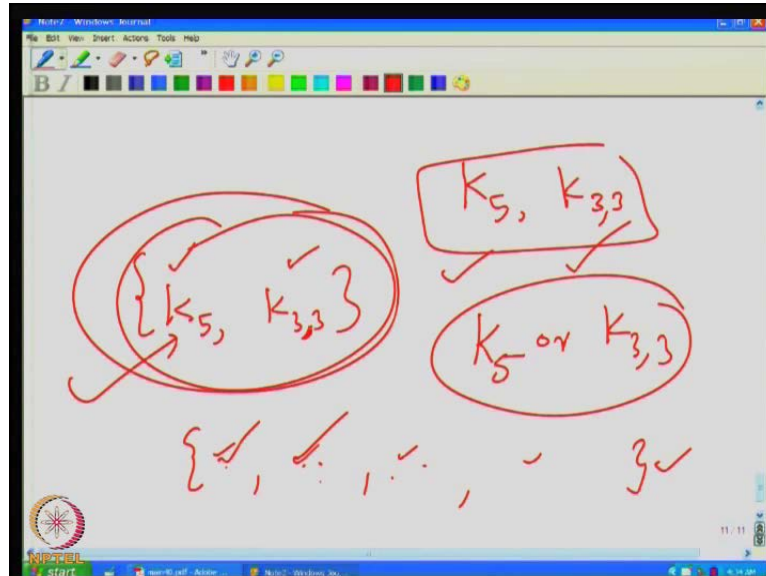 Note2 - Windows Journal
File Edit View Insert Actions Tools Help
B I
K5, K3,3
{K5, K3,3}
K5 or K3,3
{ , , , }
11 / 11
NPTEL
start
Note2 - Windows Jou...